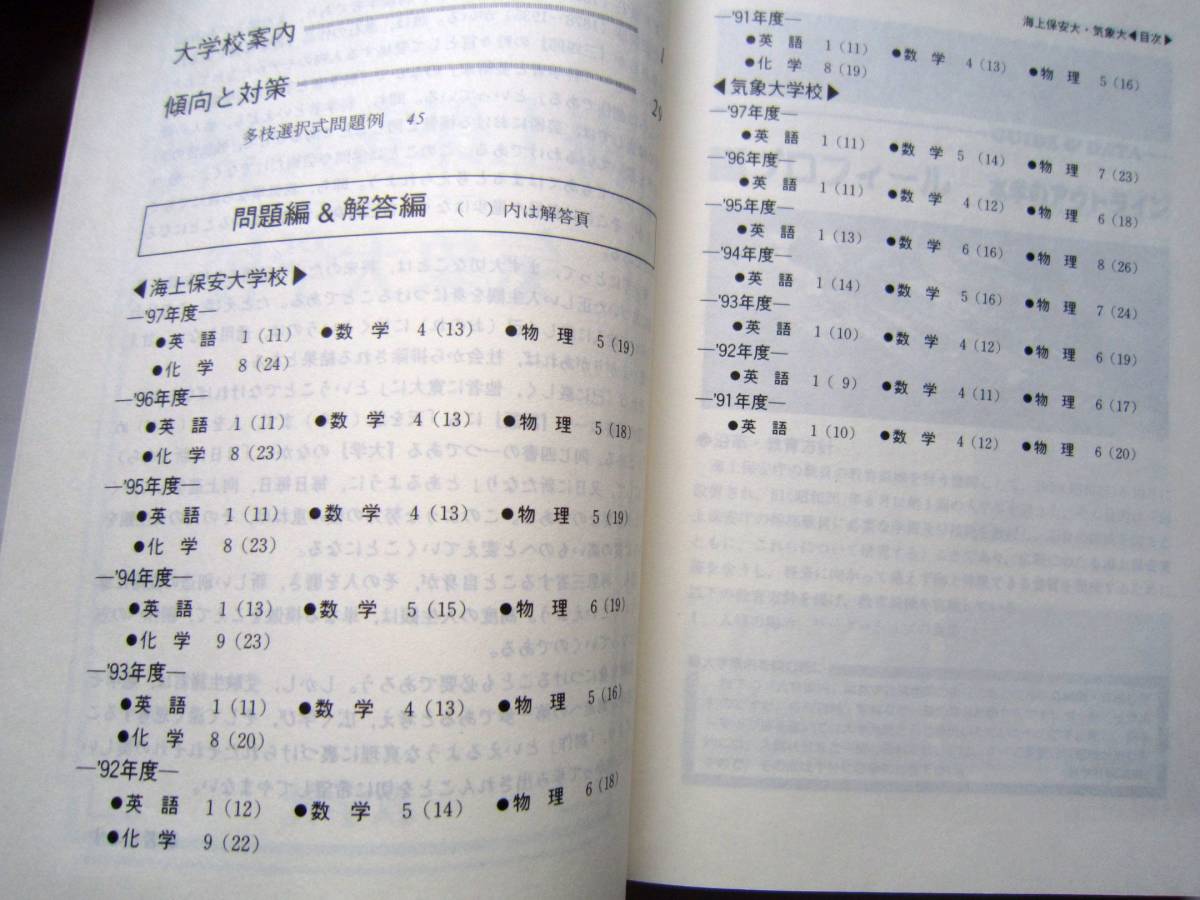 大学校案内
傾向と対策
多枝選択式問題例 45
問題編&解答編 ( )内は解答頁
◀海上保安大学校▶
—'97年度—
●英 語 1(11) ●数 学 4(13) ●物 理 5(19)
●化 学 8(24)
—'96年度—
●英 語 1(11) ●数 学 4(13) ●物 理 5(18)
●化 学 8(23)
—'95年度—
●英 語 1(11) ●数 学 4(13) ●物 理 5(19)
●化 学 8(23)
—'94年度—
●英 語 1(13) ●数 学 5(15) ●物 理 6(19)
●化 学 9(23)
—'93年度—
●英 語 1(11) ●数 学 4(13) ●物 理 5(16)
●化 学 8(20)
—'92年度—
●英 語 1(12) ●数 学 5(14) ●物 理 6(18)
●化 学 9(22)
海上保安大・気象大◀目次▶
—'91年度—
●英 語 1(11) ●数 学 4(13) ●物 理 5(16)
●化 学 8(19)
◀気象大学校▶
—'97年度—
●英 語 1(11) ●数 学 5(14) ●物 理 7(23)
—'96年度—
●英 語 1(11) ●数 学 4(12) ●物 理 6(18)
—'95年度—
●英 語 1(13) ●数 学 6(16) ●物 理 8(26)
—'94年度—
●英 語 1(14) ●数 学 5(16) ●物 理 7(24)
—'93年度—
●英 語 1(10) ●数 学 4(12) ●物 理 6(19)
—'92年度—
●英 語 1( 9) ●数 学 4(11) ●物 理 6(17)
—'91年度—
●英 語 1(10) ●数 学 4(12) ●物 理 6(20)